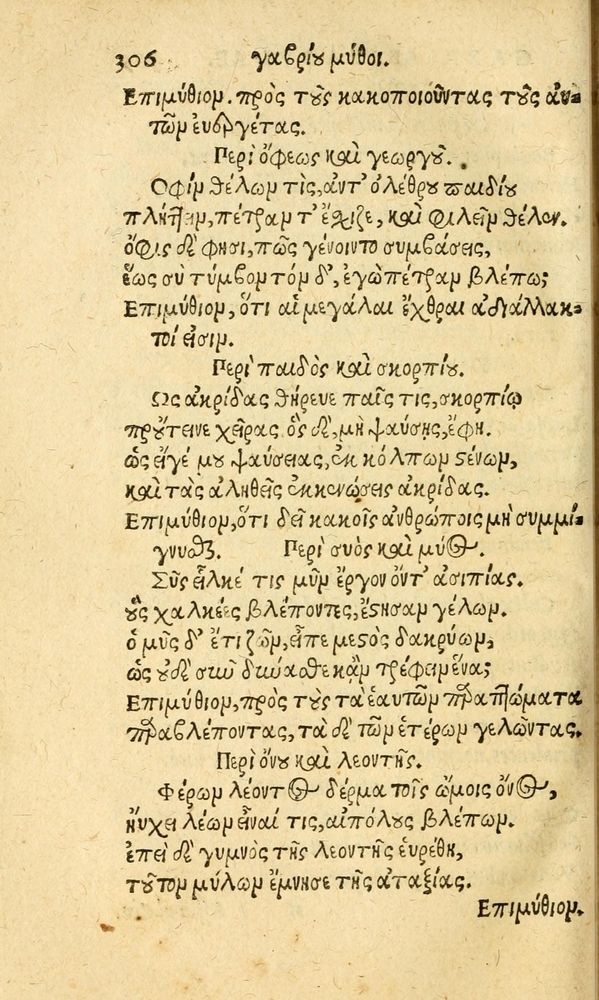 306 γαβρίου μύθοι.
Επιμύθιον. πρὸς τοὺς κακοποιοῦντας τοὺς αὑ-
τῶν ευεργέτας.
Περὶ ὄφεως καὶ γεωργοῦ.
Οφιν θέλων τὶς, ἀντ' ὀλέθρου παιδίου
πλήττειν, πέτραν τ' ἔσχιζε, καὶ φιλεῖν θέλων.
ὄφις δὲ φησι, πῶς γένοιντο συμβάσεις,
ἕως συ τύμβον τόνδ', ἐγὼ πέτραν βλέπω;
Επιμύθιον, ὅτι αἱ μεγάλαι ἔχθραι ἀδιάλλακ-
τοί εἰσιν.
Περὶ παιδὸς καὶ σκορπίου.
Ως ἀκρίδας θήρευε παῖς τις, σκορπίῳ
προύτεινε χεῖρας ὃς δὲ, μὴ ψαύσῃς, ἔφη.
ὡς εἴγέ μου ψαύσειας, ἐκ κόλπων στένων,
καὶ τὰς ἀληθεῖς ἐκκενώσεις ἀκρίδας.
Επιμύθιον, ὅτι δεῖ κακοῖς ἀνθρώποις μὴ συμμί-
γνυσθαι. Περὶ συὸς καὶ μυός.
Σῦς εἷλκέ τις μῦν ἔργον ὄντ' ἀσιτίας.
οὓς χαλκέες βλέποντες, ἔστησαν γέλων.
ὁ μῦς δ' ἔτι ζῶν, εἶπε μεστὸς δακρύων,
ὡς οὐδὲ σῦν δύνασθε κἂν τρέφειν ἕνα;
Επιμύθιον, πρὸς τοὺς τὰ ἑαυτῶν πταίσματα
παραβλέποντας, τὰ δὲ τῶν ἑτέρων γελῶντας.
Περὶ ὄνου καὶ λεοντῆς.
Φέρων λέοντος δέρμα τοῖς ὤμοις ὄνος,
ηὔχει λέων εἶναί τις, αἰπόλους βλέπων.
ἐπεὶ δὲ γυμνὸς τῆς λεοντῆς εὑρέθη,
τοῦτον μύλων ἔμνησε τῆς ἀταξίας.
Επιμύθιον.